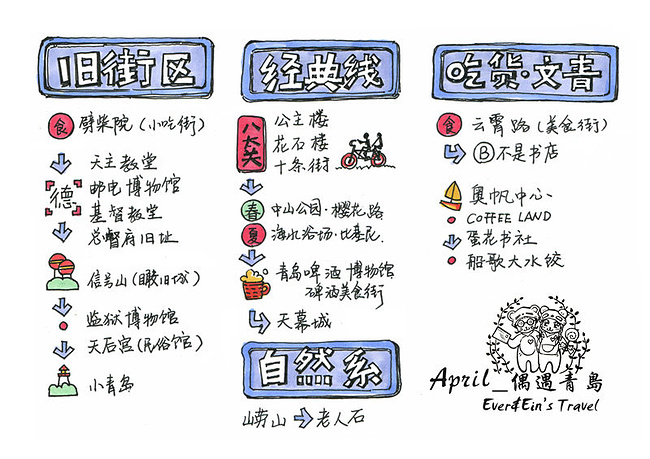 旧街区
食 劈柴院(小吃街)
天主教堂
德
邮电博物馆
基督教堂
总督府旧址
信号山(目敢旧城)
监狱博物馆
天后宫(民俗馆)
小青岛
经典线
八大关
公主楼
花石楼
十条街
春 中山公园·樱花路
夏 海水浴场·比基尼
青岛啤酒博物馆
啤酒美食街
天幕城
自然系
崂山 老人石
吃货·文青
食 云霄路(美食街)
B不是书店
奥帆中心
COFFEE LAND
蛋花书社
船歌大水饺
April_偶遇青島
Ever&Ein's Travel